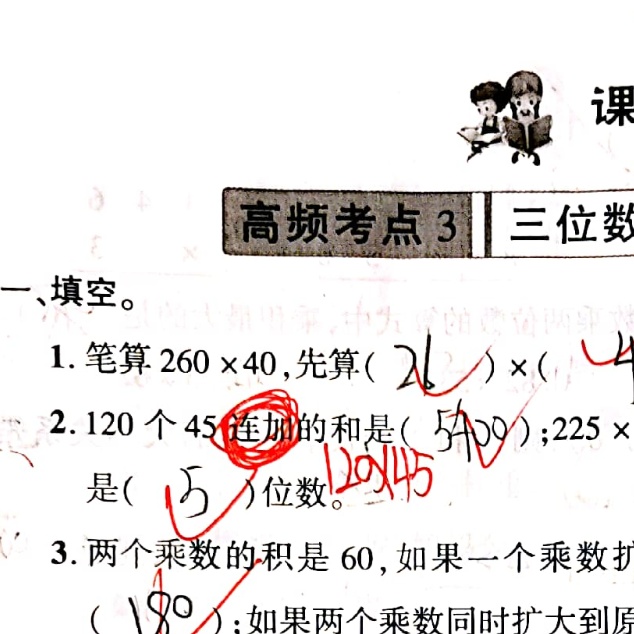 课
高频考点3 三位数
一、填空。
1. 笔算 260×40,先算( 26 )×( 4
2. 120个45连加的和是( 5400 );225×
120×45
是( 5 )位数。
3. 两个乘数的积是60,如果一个乘数扩
( 180 );如果两个乘数同时扩大到原